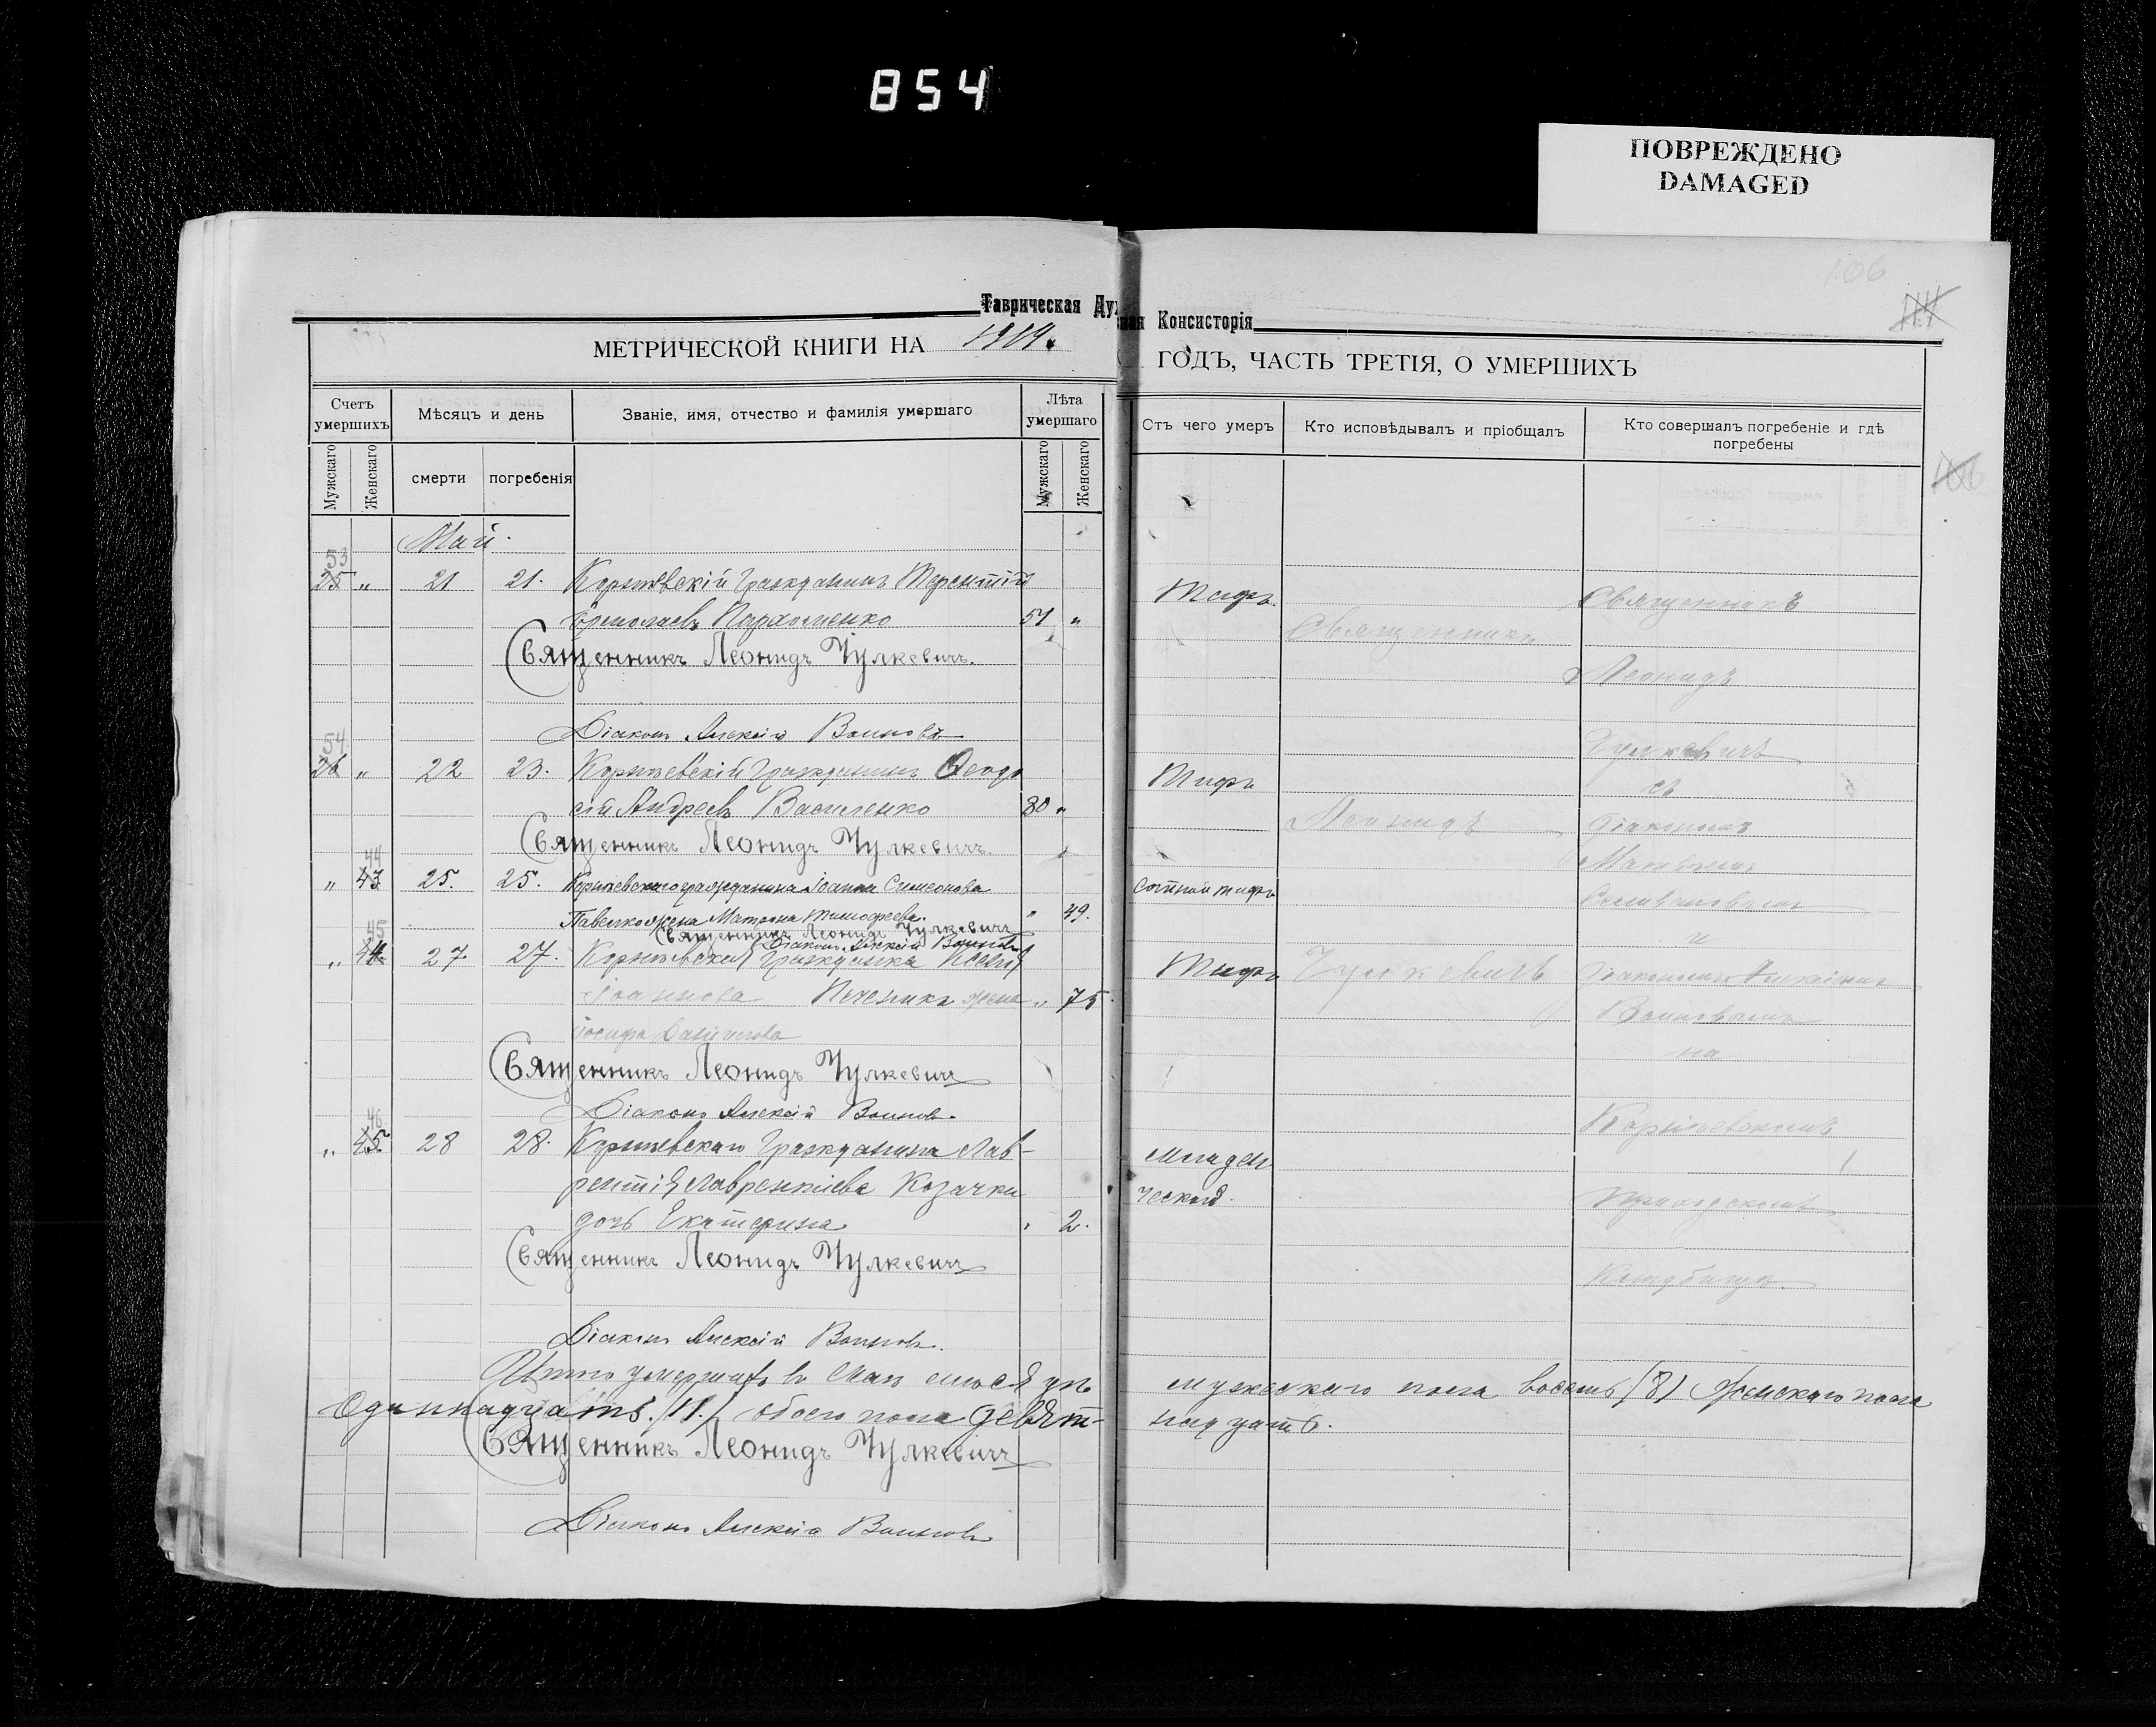 854
ПОВРЕЖДЕНО
DAMAGED
106
Таврическая Ду
ная Консисторія
МЕТРИЧЕСКОЙ КНИГИ НА 1919.
ГОДЪ, ЧАСТЬ ТРЕТІЯ, О УМЕРШИХЪ
Счетъ умершихъ
Мѣсяцъ и день
Званіе, имя, отчество и фамилія умершаго
Лѣта умершаго
Отъ чего умеръ
Кто исповѣдывалъ и пріобщалъ
Кто совершалъ погребеніе и гдѣ погребены
Мужскаго
Женскаго
смерти
погребенія
Мужскаго
Женскаго
Май.
53
25 " 21 21. Гражданинъ Терентій Тифъ. Священникъ
Ермолаевъ Пархоменко 51 "
Священникъ Леонидъ Чулкевичъ. Священникъ
Леонидъ
Діаконъ Алексій Воиновъ Чулкевичъ
54
26 " 22 23. Гражданинъ Ѳеодо Тифъ съ
сій Андреевъ Василенко 30 "
Священникъ Леонидъ Чулкевичъ. Леонидъ діакономъ
44
" 43 25. 25. гражданина Іоанна Симеонова тифъ
Павелко жена Матрона Тимофеева. " 49.
Священникъ Леонидъ Чулкевичъ и
Діаконъ Алексій Воиновъ
45
" 44 27 27. Гражданка Ксенія Тифъ Чулкевичъ діакономъ Алексіемъ
Іоаннова жена " 75.
Іосифа Воиновымъ
на
Священникъ Леонидъ Чулкевичъ
Діаконъ Алексій Воиновъ.
46
" 45 28 28. Гражданина Лав- младен
рентія Лаврентіева Козачки ческой. приходскомъ
дочь Екатерина " 2.
Священникъ Леонидъ Чулкевичъ кладбищѣ.
Діаконъ Алексій Воиновъ.
Итого умершихъ въ Маѣ мѣсяцѣ мужескаго пола восемь (8) Женскаго пола
Одиннадцать. (11.) обоего пола девят- надцать.
Священникъ Леонидъ Чулкевичъ
Діаконъ Алексій Воиновъ